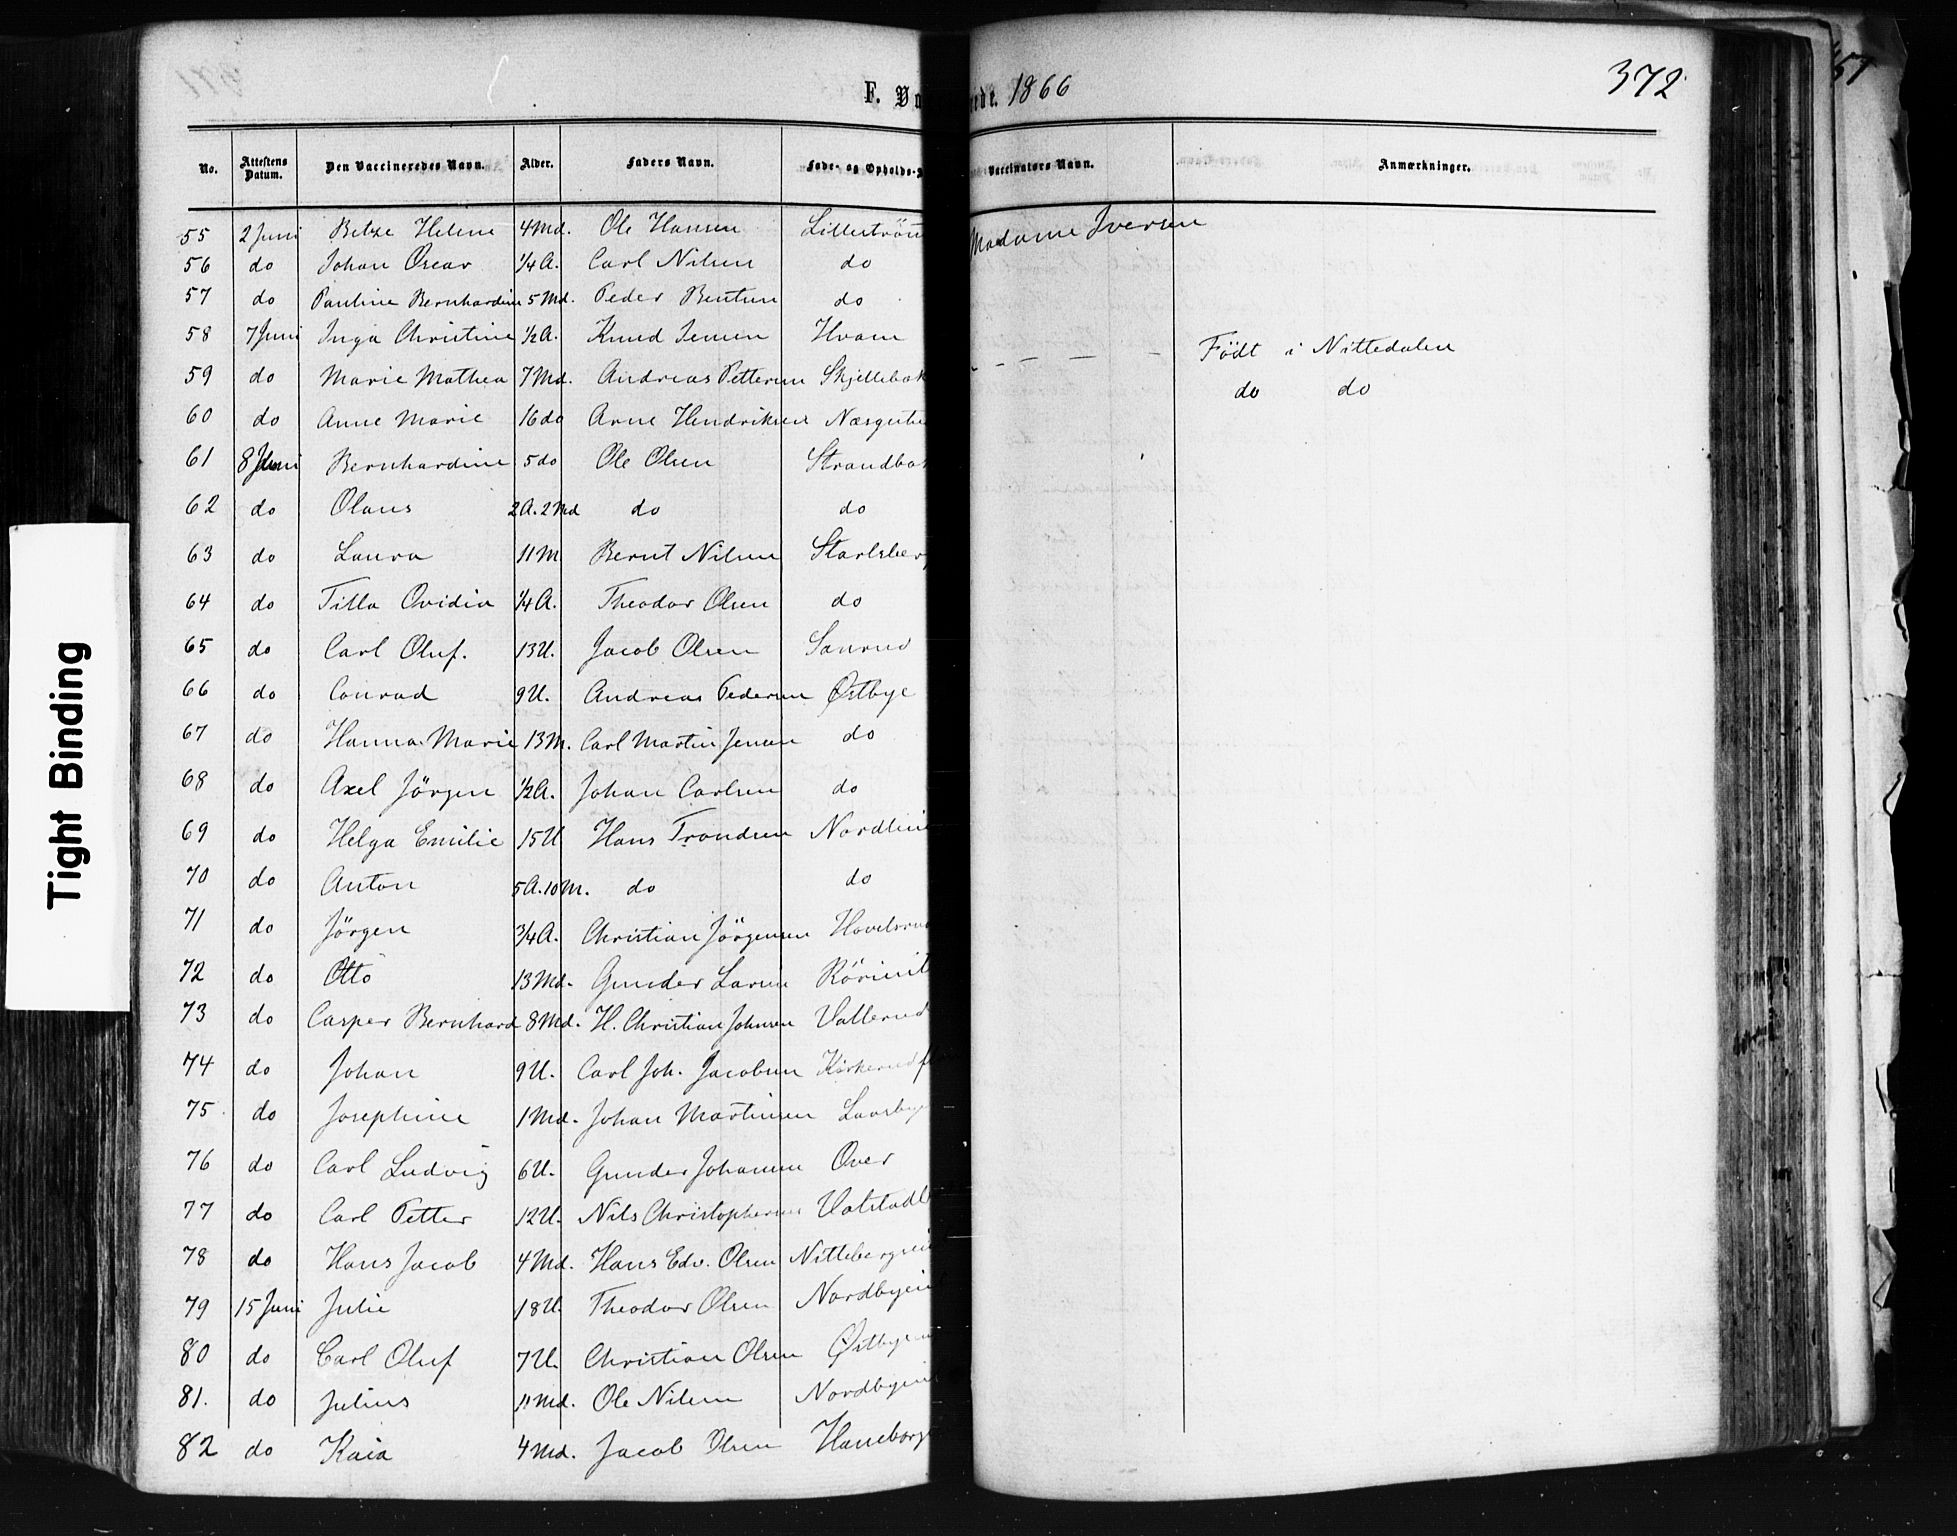 F. Va
ede. 1866
372
No. Attestens Datum. Den Vaccineredes Navn. Alder. Faders Navn. Føde- og Opholds- Vaccinators Navn. Anmærkninger.
55 2 Juni Betze Helene 4 Md. Ole Hansen Lillestrøm Madame Iversen
56 do Johan Oscar 1/4 A. Carl Nilsen do
57 do Pauline Bernhardine 5 Md. Peder Bentsen do
58 7 Juni Inga Christine 1/2 A. Knud Jensen Hvam
Født i Nittedalen
59 do Marie Mathea 7 Md. Andreas Pettersen Skjettebak
do do
60 do Anne Marie 16 do Arne Hendriksen
61 8 Juni Bernhardine 5 do Ole Olsen Strandbak
62 do Olaus 2 A. 2 Md do do
63 do Laura 11 M Bernt Nilsen Starlsberg
64 do Tilla Ovidia 1/4 A. Theodor Olsen do
65 do Carl Oluf. 13 U. Jacob Olsen
66 do Conrad 9 U. Andreas Pedersen Østbye
67 do Hanna Marie 13 M. Carl Martin Jensen do
68 do Axel Jörgen 1/2 A. Johan Carlsen do
69 do Helga Emilie 15 U Hans Trondsen Nordlie
70 do Anton 5 A. 10 M. do do
71 do Jörgen 3/4 A. Christian Jörgensen
72 do Otto 13 Md. Gunder Larsen
73 do Casper Bernhard 8 Md. H. Christian Johnsen Vallerud
74 do Johan 9 U. Carl Joh. Jacobsen
75. do Josephine 1 Md. Johan Martinsen
76 do Carl Ludvig 6 U. Gunder Johansen Over
77 do Carl Petter 12 U. Nils Christophersen
78 do Hans Jacob 4 Md. Hans Edv. Olsen Nittebergei
79 15 Juni Julie 18 U Theodor Olsen Nordbyei
80 do Carl Oluf 7 U. Christian Olsen Østbye
81. do Julius 11 Md. Ole Nilsen Nordbyei
82 do Kaia 4 Md. Jacob Olsen Haneborg
Tight Binding